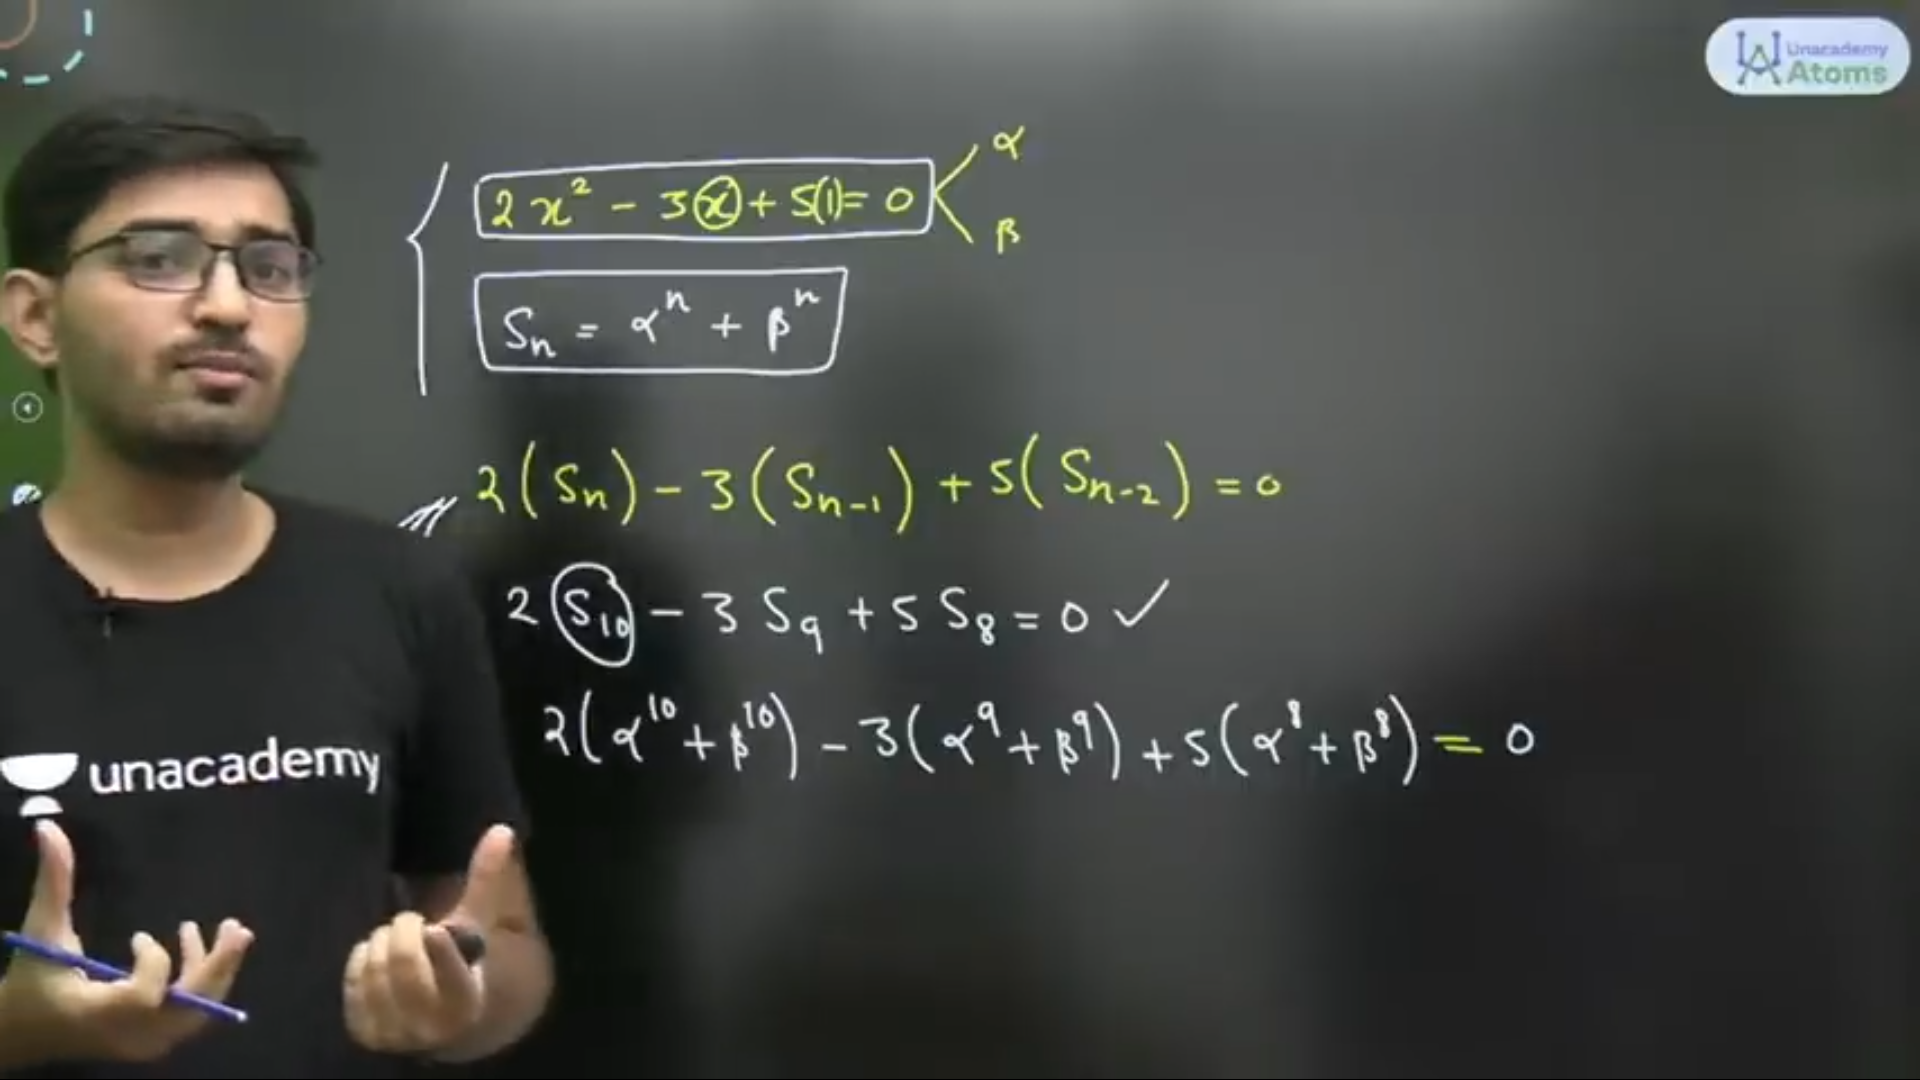 Unacademy
Atoms
2x² - 3x + 5(1) = 0
α
β
Sₙ = αⁿ + βⁿ
2(Sₙ) - 3(Sₙ₋₁) + 5(Sₙ₋₂) = 0
2 S₁₀ - 3 S₉ + 5 S₈ = 0 ✓
2(α¹⁰ + β¹⁰) - 3(α⁹ + β⁹) + 5(α⁸ + β⁸) = 0
unacademy